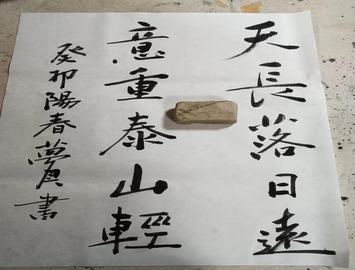 天長落日遠
意重泰山輕
癸卯陽春蕒書